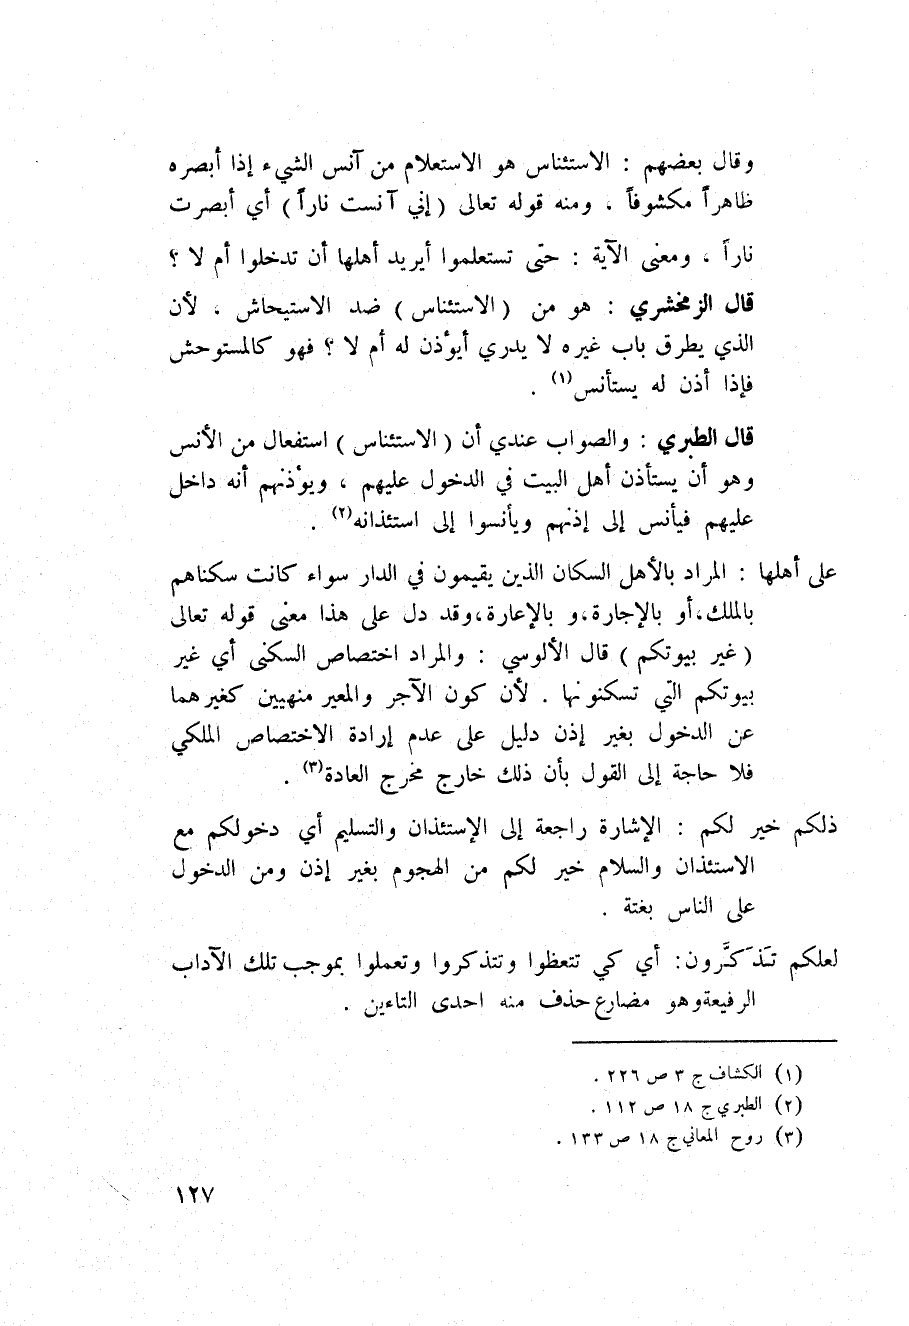 وقال بعضهم : الاستئناس هو الاستعلام من آنس الشيء إذا أبصره
ظاهراً مكشوفاً ، ومنه قوله تعالى ( إني آنست ناراً ) أي أبصرت
ناراً ، ومعنى الآية : حتى تستعلموا أيريد أهلها أن تدخلوا أم لا ؟
قال الزمخشري : هو من ( الاستئناس ) ضد الاستيحاش ، لأن
الذي يطرق باب غيره لا يدري أيؤذن له أم لا ؟ فهو كالمستوحش
فإذا أذن له يستأنس(١) .
قال الطبري : والصواب عندي أن ( الاستئناس ) استفعال من الأنس
وهو أن يستأذن أهل البيت في الدخول عليهم ، ويؤذنهم أنه داخل
عليهم فيأنس إلى إذنهم ويأنسوا إلى استئذانه(٢) .
على أهلها : المراد بالأهل السكان الذين يقيمون في الدار سواء كانت سكناهم
بالملك،أو بالإجارة،و بالإعارة،وقد دل على هذا معنى قوله تعالى
( غير بيوتكم ) قال الألوسي : والمراد اختصاص السكنى أي غير
بيوتكم التي تسكنونها . لأن كون الآجر والمعير منهيين كغيرهما
عن الدخول بغير إذن دليل على عدم إرادة الاختصاص الملكي
فلا حاجة إلى القول بأن ذلك خارج مخرج العادة(٣) .
ذلكم خير لكم : الإشارة راجعة إلى الإستئذان والتسليم أي دخولكم مع
الاستئذان والسلام خير لكم من الهجوم بغير إذن ومن الدخول
على الناس بغتة .
لعلكم تَذَكَّرون: أي كي تتعظوا وتتذكروا وتعملوا بموجب تلك الآداب
الرفيعةوهو مضارع حذف منه احدى التاءين .
(١) الكشاف ج ٣ ص ٢٢٦ .
(٢) الطبري ج ١٨ ص ١١٢ .
(٣) روح المعاني ج ١٨ ص ١٣٣ .
١٢٧